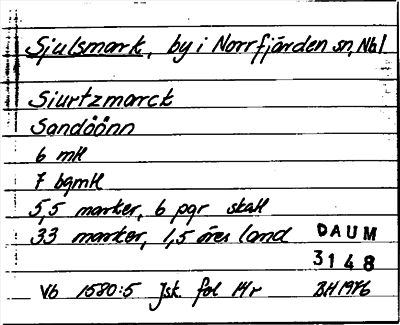 Sjulsmark, by i Norrfjärden sn, Nbl
Siurtzmarck
Sandöönn
6 mtl
7 bgmtl
5,5 marker, 6 pgr skatt
33 marker, 1,5 öres land
DAUM
3148
Vb 1580:5 Jsk fol 14r BH 1976